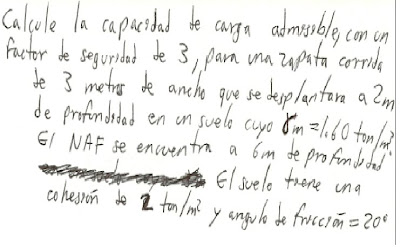 Calcule la capacidad de carga admisible, con un
factor de seguridad de 3, para una zapata corrida
de 3 metros de ancho que se desplantara a 2m
de profundidad en un suelo cuyo γm = 1.60 ton/m³
El NAF se encuentra a 6m de profundidad
El suelo tiene una
cohesión de 2 ton/m² y angulo de fricción = 20°